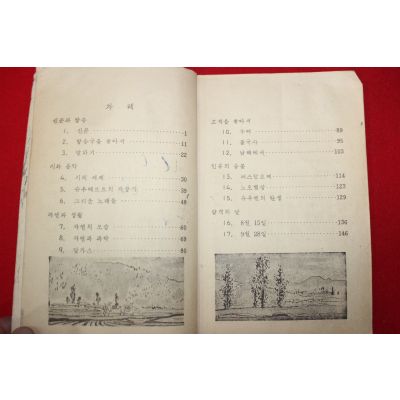 차 례
신문과 방송
1. 신문 1
2. 방송국을 찾아서 11
3. 말하기 22
시와 음악
4. 시의 세계 30
5. 슈우베르트의 자장가 39
6. 그리운 노래들 48
자연과 생활
7. 자연의 모습 60
8. 자연과 과학 69
9. 알가스 80
고적을 찾아서
10. 부여 89
11. 불국사 95
12. 남해에서 103
인류의 등불
13. 114
14. 노오벨상 123
15. 유우엔의 탄생 129
감격의 날
16. 8월 15일 136
17. 9월 28일 146